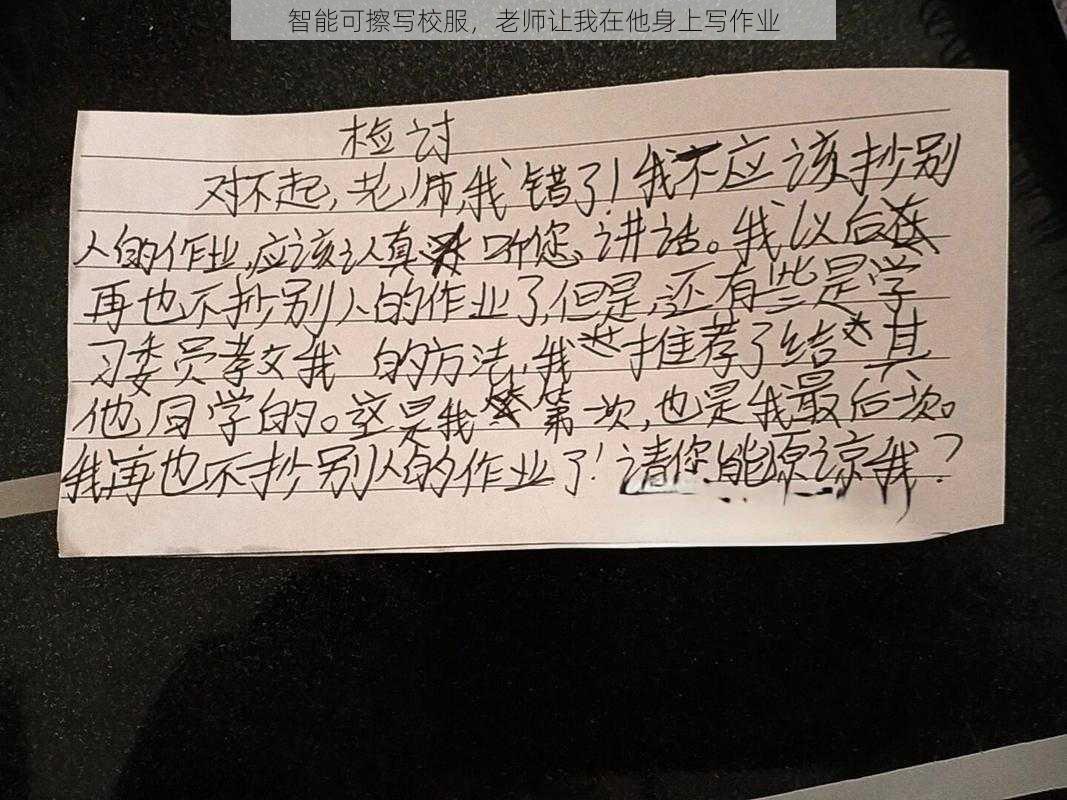 智能可擦写校服，老师让我在他身上写作业
检讨
对不起,老师,我错了!我不应该抄别
人的作业,应该认真听您讲话。我以后在
再也不抄别人的作业了,但是,还有些是学
习委员孝文我 的方法,我才推荐了给其
他同学的。这是我第一次,也是我最后次。
我再也不抄别人的作业了!请你能原谅我?